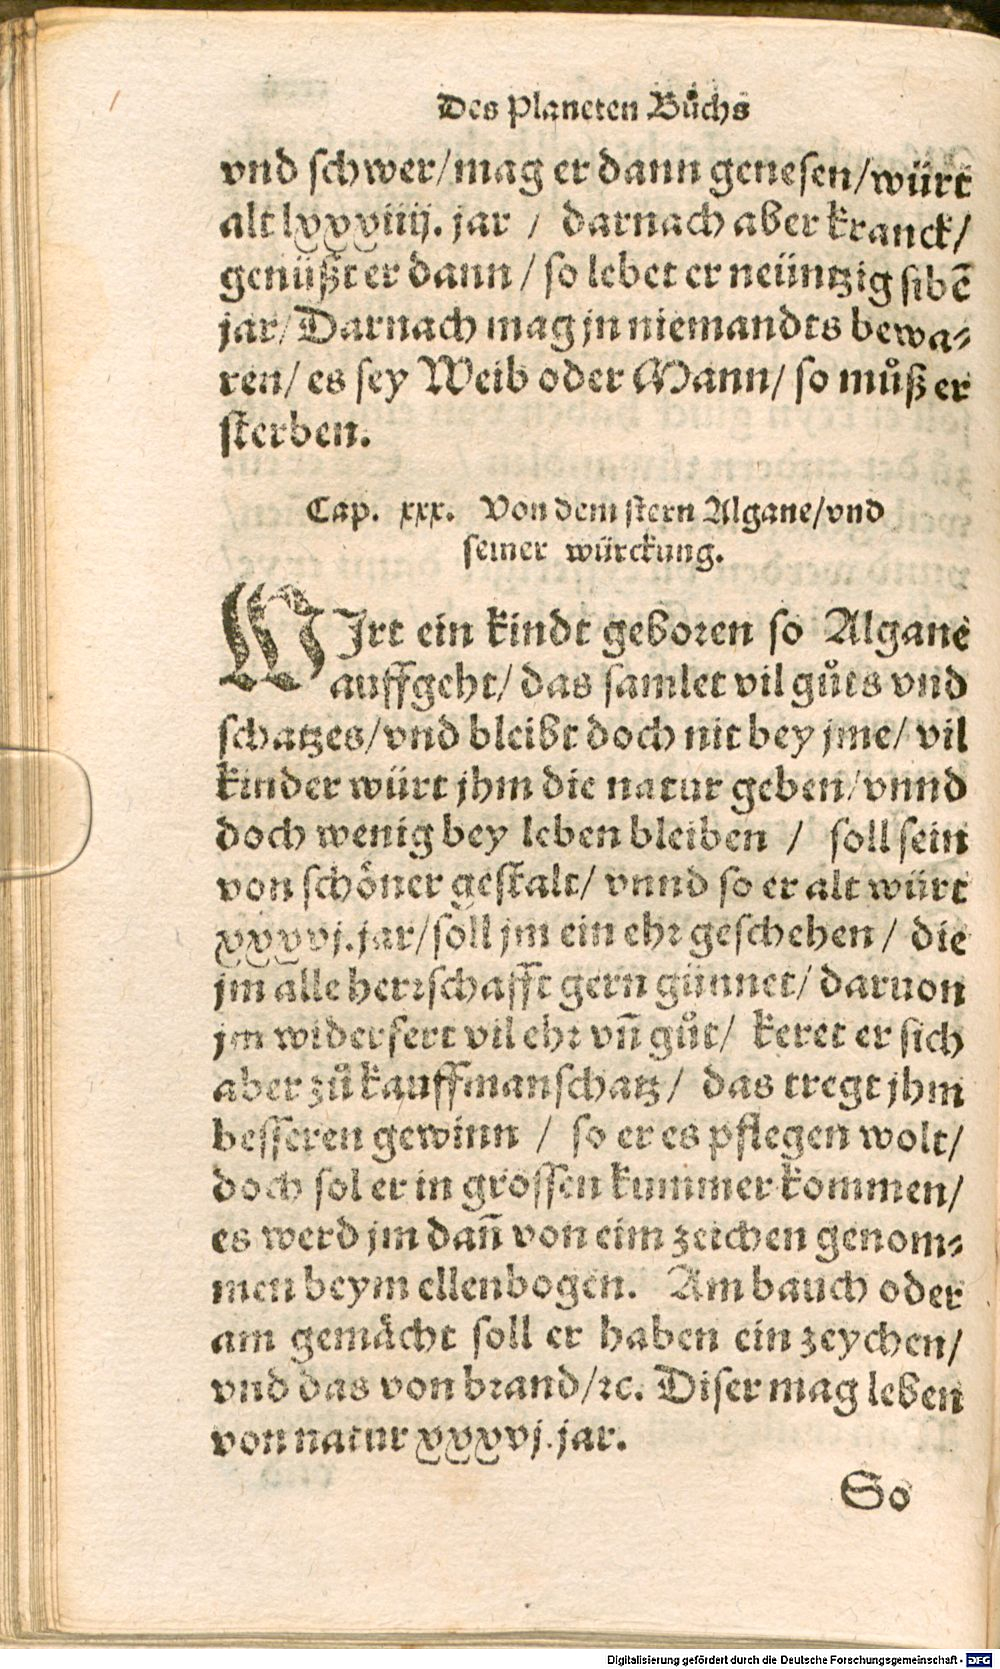 Des Planeten Bůchs
vnd schwer/mag er dann genesen/würt
alt lxxxviiij. jar / darnach aber kranck/
genüßt er dann / so lebet er neüntzig sibē
jar/ Darnach mag jn niemandts bewa⸗
ren/ es sey Weib oder Mann/ so můß er
sterben.
Cap. xxx. Von dem stern Algane/vnd
seiner würckung.
WIrt ein kindt geboren so Algane
auffgeht/ das samlet vil gůts vnd
schatzes/vnd bleibt doch nit bey jme/ vil
kinder würt jhm die natur geben/vnnd
doch wenig bey leben bleiben / soll sein
von schöner gestalt/ vnnd so er alt würt
xxxvj.jar/soll jm ein ehr geschehen / die
jm alle herrschafft gern günnet/ daruon
jm widerfert vil ehr vñ gůt/ keret er sich
aber zů kauffmanschatz/ das tregt jhm
besseren gewinn / so er es pflegen wolt/
doch sol er in grossen kummer kommen/
es werd jm dañ von eim zeichen genom⸗
men beym ellenbogen. Am bauch oder
am gemächt soll er haben ein zeychen/
vnd das von brand/ꝛc. Diser mag leben
von natur xxxvj.jar.
So
Digitalisierung gefördert durch die Deutsche Forschungsgemeinschaft - DFG